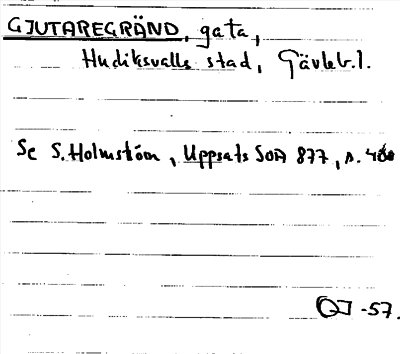 GJUTAREGRÄND, gata,
Hudiksvalls stad, Gävleb. l.
Se S. Holmström, Uppsats SOÄ 877, s.
OJ -57.